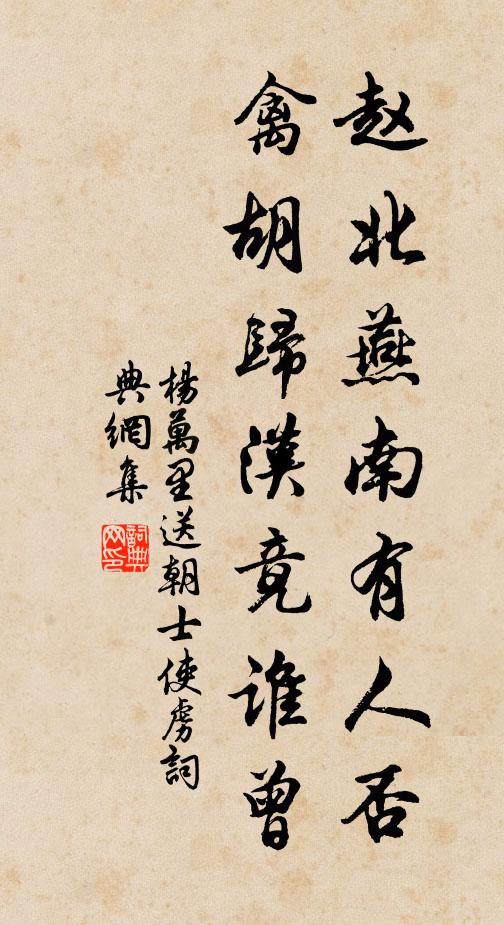 赵北燕南有人否
禽胡歸漢竟谁曾
楊萬里送朝士使虜詞
典網集
詞典
网印